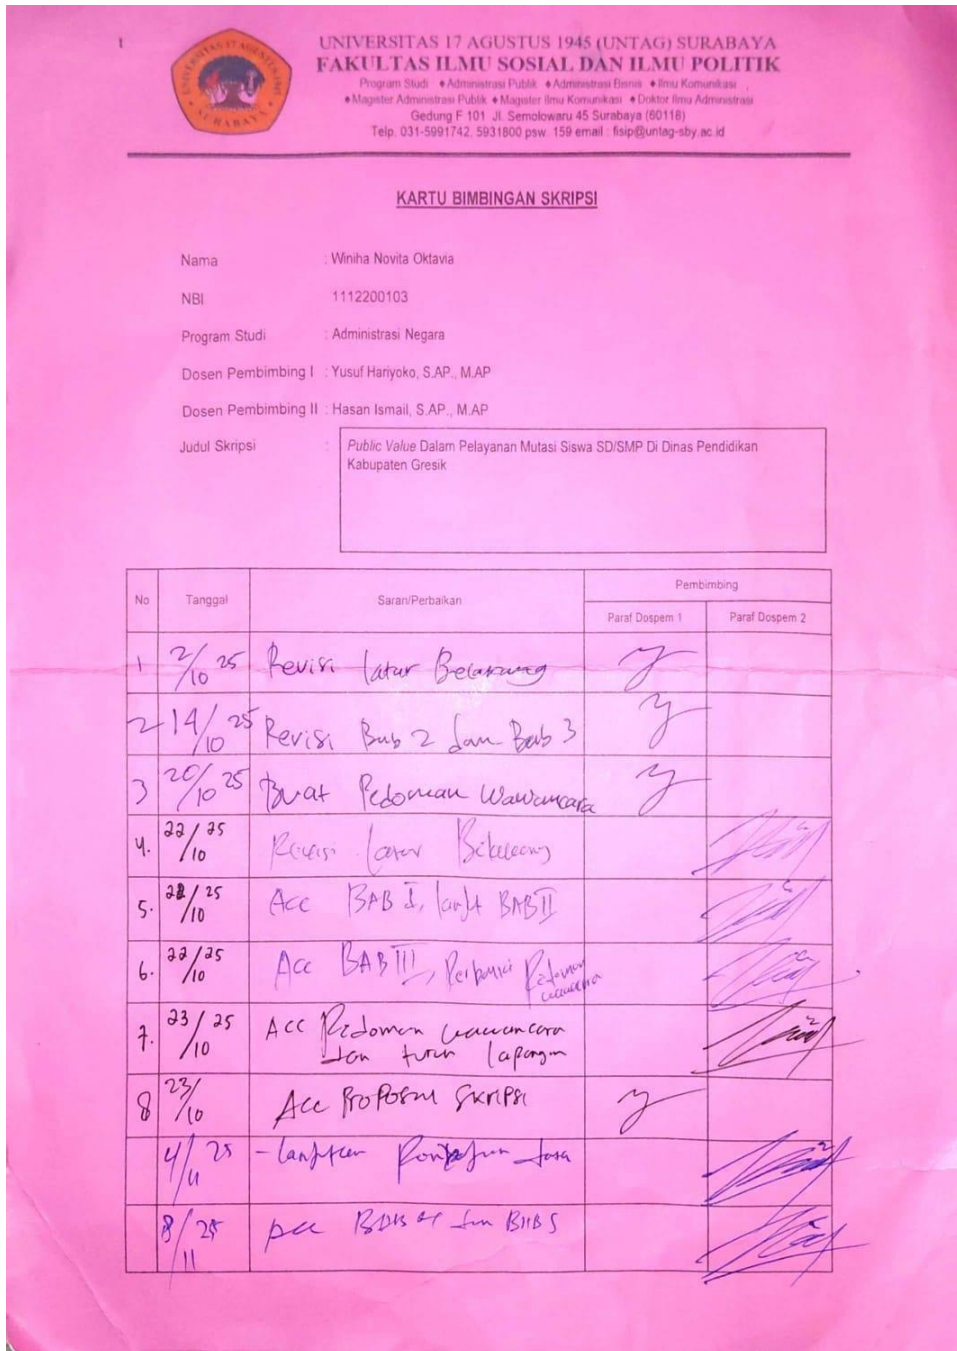 1
UNIVERSITAS 17 AGUSTUS 1945 (UNTAG) SURABAYA
FAKULTAS ILMU SOSIAL DAN ILMU POLITIK
Program Studi ♦Administrasi Publik ♦Administrasi Bisnis ♦Ilmu Komunikasi
♦Magister Administrasi Publik ♦Magister Ilmu Komunikasi ♦Doktor Ilmu Administrasi
Gedung F 101 Jl. Semolowaru 45 Surabaya (60118)
Telp. 031-5991742, 5931800 psw. 159 email : fisip@untag-sby.ac.id
KARTU BIMBINGAN SKRIPSI
Nama : Winiha Novita Oktavia
NBI 1112200103
Program Studi : Administrasi Negara
Dosen Pembimbing I : Yusuf Hariyoko, S.AP., M.AP
Dosen Pembimbing II : Hasan Ismail, S.AP., M.AP
Judul Skripsi : Public Value Dalam Pelayanan Mutasi Siswa SD/SMP Di Dinas Pendidikan
Kabupaten Gresik
No Tanggal Saran/Perbaikan Pembimbing
Paraf Dospem 1 Paraf Dospem 2
1 2/10 25 Revisi latar Belakang
2 14/10 25 Revisi Bab 2 dan Bab 3
3 20/10 25 Buat Pedoman Wawancara
4. 22/10 25 Revisi latar Belakang
5. 22/10 25 Acc BAB I, lanjut BAB II
6. 22/10 25 Acc BAB III, Pedoman
wawancara
7. 23/10 25 Acc Pedoman wawancara
dan turun lapangan
8 23/10 Acc Proposal Skripsi
4/11 25 - lanjutkan
8/11 25 Acc dan BAB 5